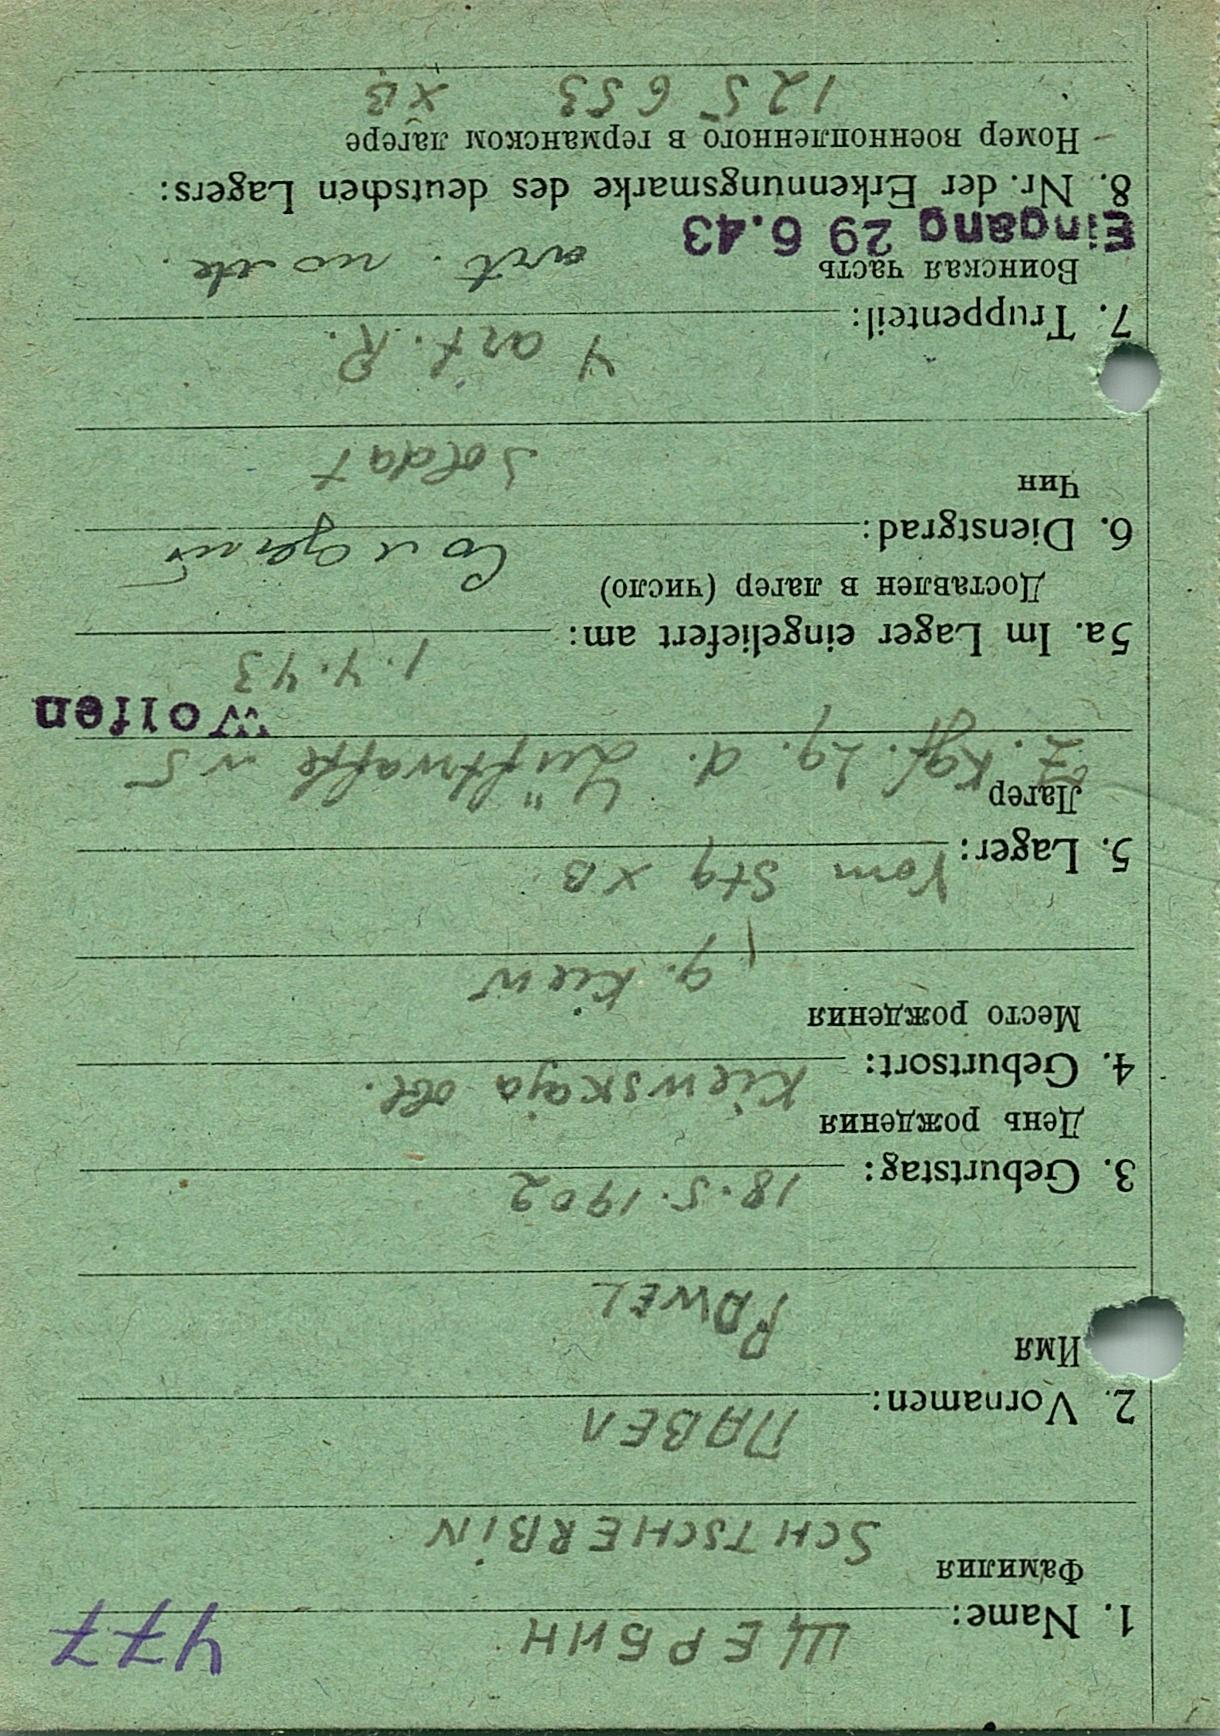 477
1. Name: ЩЕРБИН
Фамилия
SCHTSCHERBIN
2. Vornamen: ПАВЕЛ
Имя
PAWEL
3. Geburtstag: 18.5.1902
День рождения
4. Geburtsort: Kiewskaja obl.
Место рождения
g. Kiew
5. Lager: Vom Stg XB
Лагер
z. Kgf. Lg. d. Luftwaffe N 5
Wolfen
1.4.43
5a. Im Lager eingeliefert am:
Доставлен в лагер (число)
6. Dienstgrad:
Чин
Soldat
4 art. R.
7. Truppenteil:
Воинская часть
art.
Eingang 29 6.43
8. Nr. der Erkennungsmarke des deutschen Lagers:
Номер военнопленного в германском лагере
125 653 XB